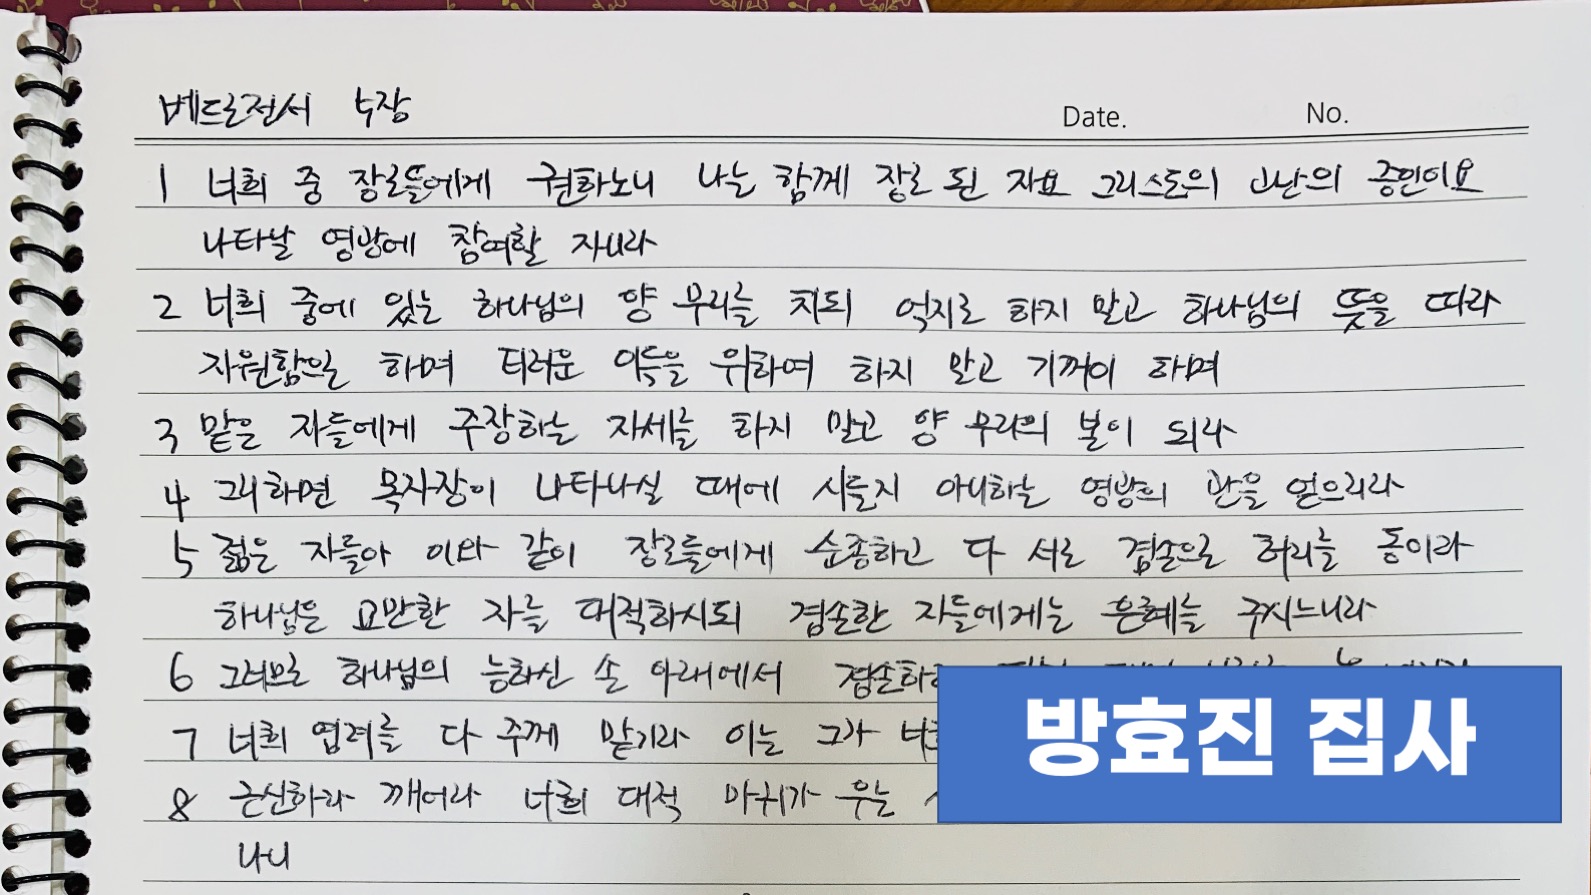 베드로전서 5장
Date. No.
1 너희 중 장로들에게 권하노니 나는 함께 장로 된 자요 그리스도의 고난의 증인이요
나타날 영광에 참여할 자니라
2 너희 중에 있는 하나님의 양 무리를 치되 억지로 하지 말고 하나님의 뜻을 따라
자원함으로 하며 더러운 이득을 위하여 하지 말고 기꺼이 하며
3 맡은 자들에게 주장하는 자세를 하지 말고 양 무리의 본이 되라
4 그리하면 목자장이 나타나실 때에 시들지 아니하는 영광의 관을 얻으리라
5 젊은 자들아 이와 같이 장로들에게 순종하고 다 서로 겸손으로 허리를 동이라
하나님은 교만한 자를 대적하시되 겸손한 자들에게는 은혜를 주시느니라
6 그러므로 하나님의 능하신 손 아래에서
7 너희 염려를 다 주께 맡기라 이는 그가
8 근신하라 깨어라 너희 대적 마귀가 우는
나니
방효진 집사